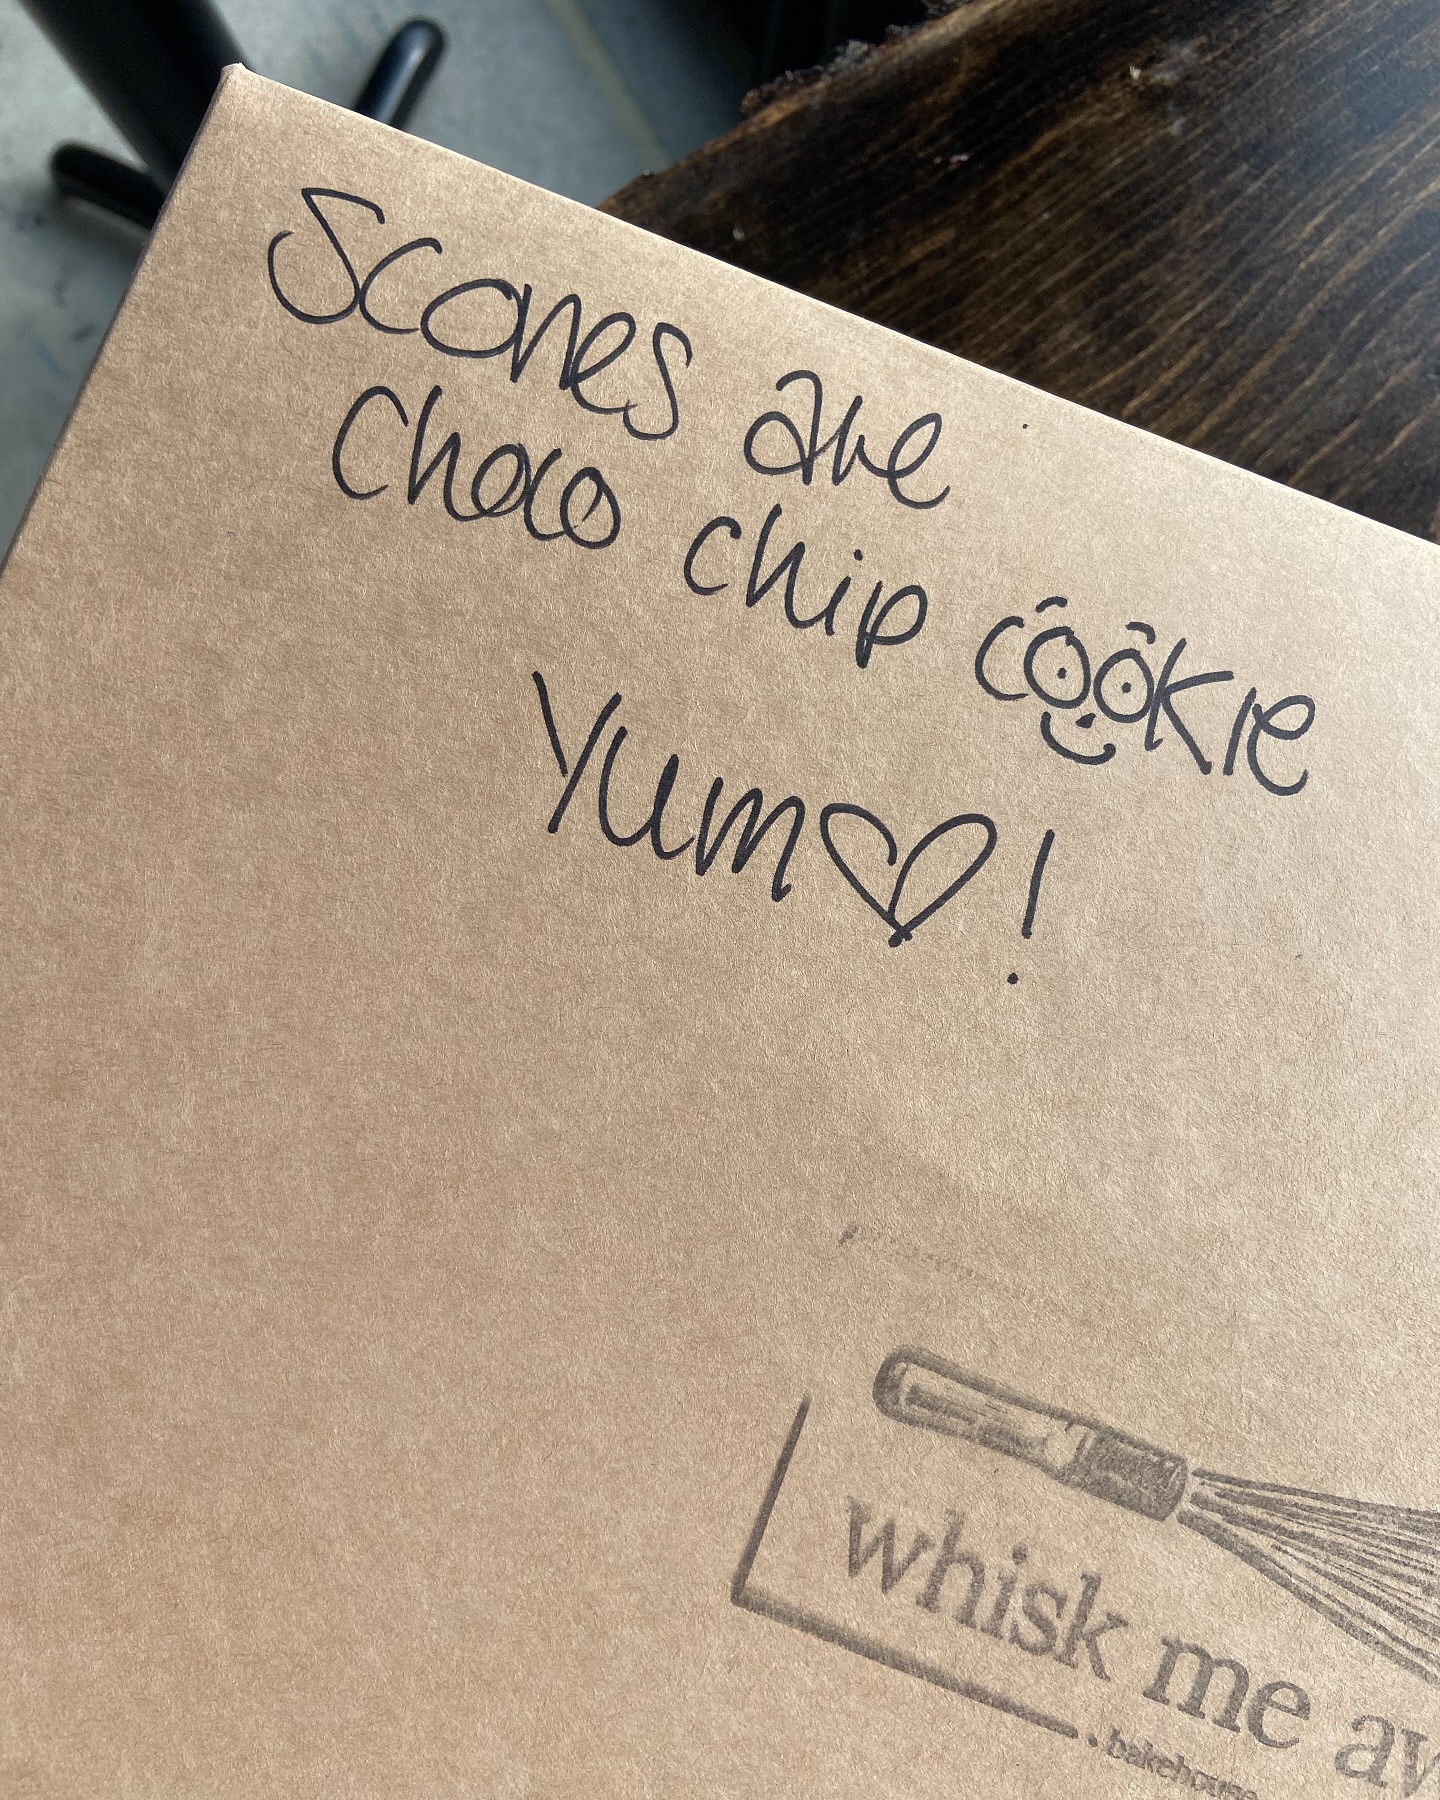 Scones are
Choco chip cookie
Yum♡!
whisk me aw
bakehouse